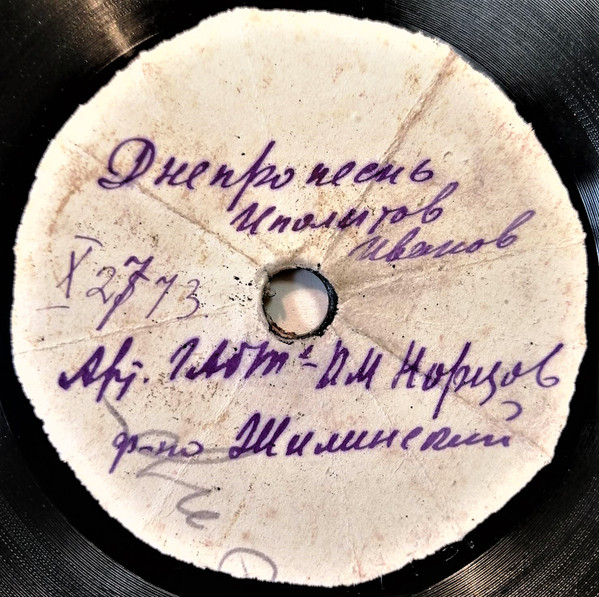 Днепропеснь
Иполитов
Иванов
X 2773
Арт. ГАБТа ПМ Норцов
ф-но Жилинский